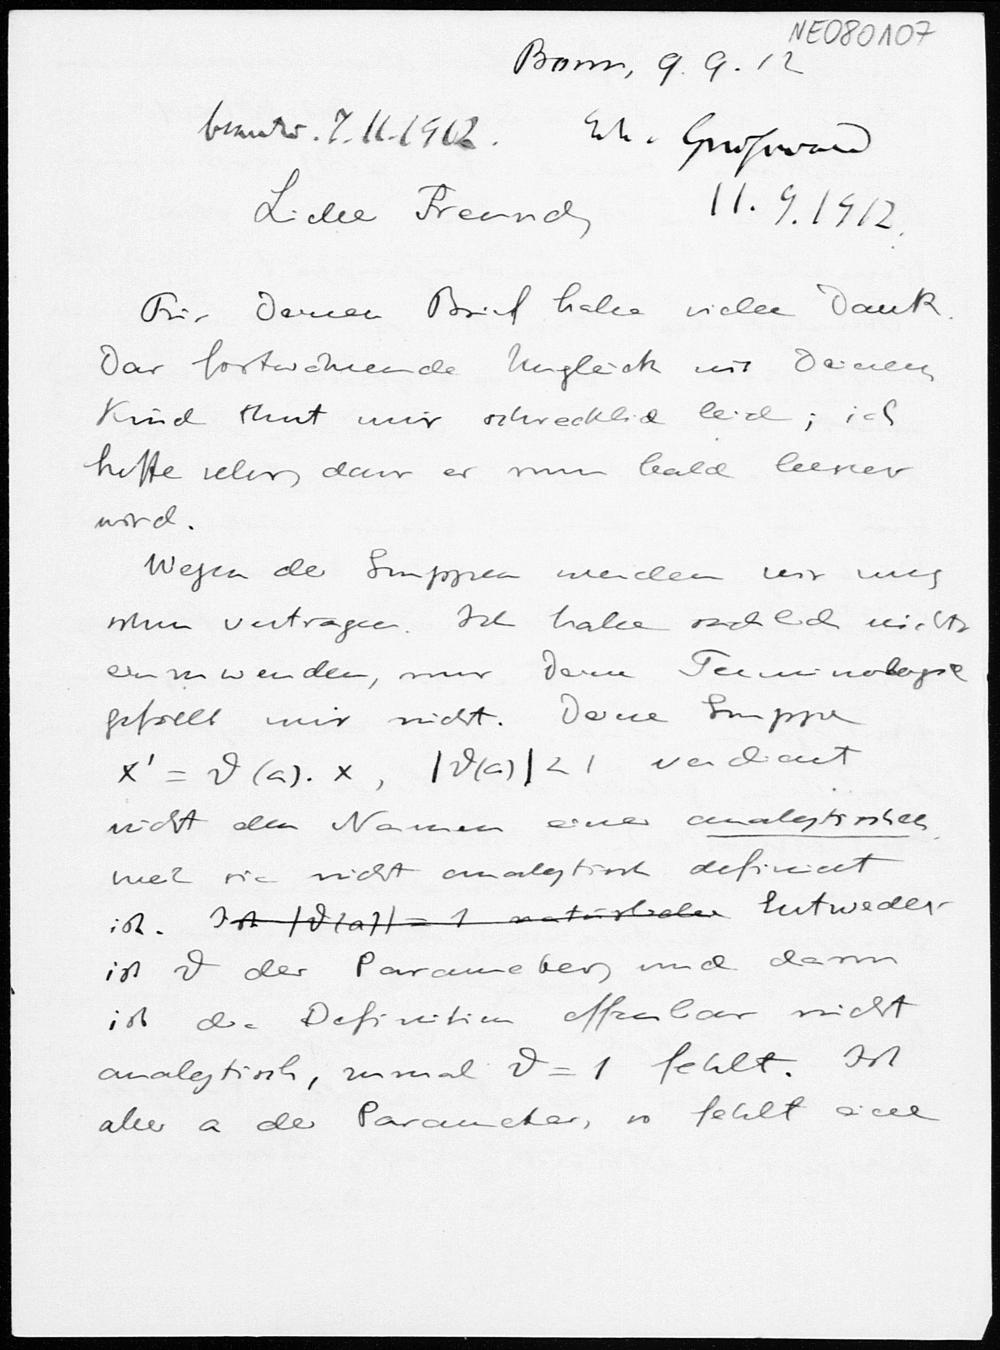 NE080107
Bonn, 9. 9. 12
beantw. 7.11.1912. Erh. Greifswald
11. 9. 1912.
Lieber Freund,
Für Deinen Brief habe vielen Dank.
Das fortwährende Unglück mit Deinem
Kind thut mir schrecklich leid; ich
hoffe sehr, dass er nun bald besser
wird.
Wegen der Gruppen werden wir uns
schon vertragen. Ich habe sachlich nichts
einzuwenden, nur Deine Terminologie
gefällt mir nicht. Deine Gruppe
x' = ϑ(a). x, |ϑ(a)| < 1 verdient
nicht den Namen einer analytischen,
weil sie nicht analytisch definiert
ist. Ist |ϑ(a)| = 1 natürlicher Entweder
ist ϑ der Parameter, und dann
ist die Definition offenbar nicht
analytisch, zumal ϑ = 1 fehlt. Ist
aber a der Parameter, so fehlt eine